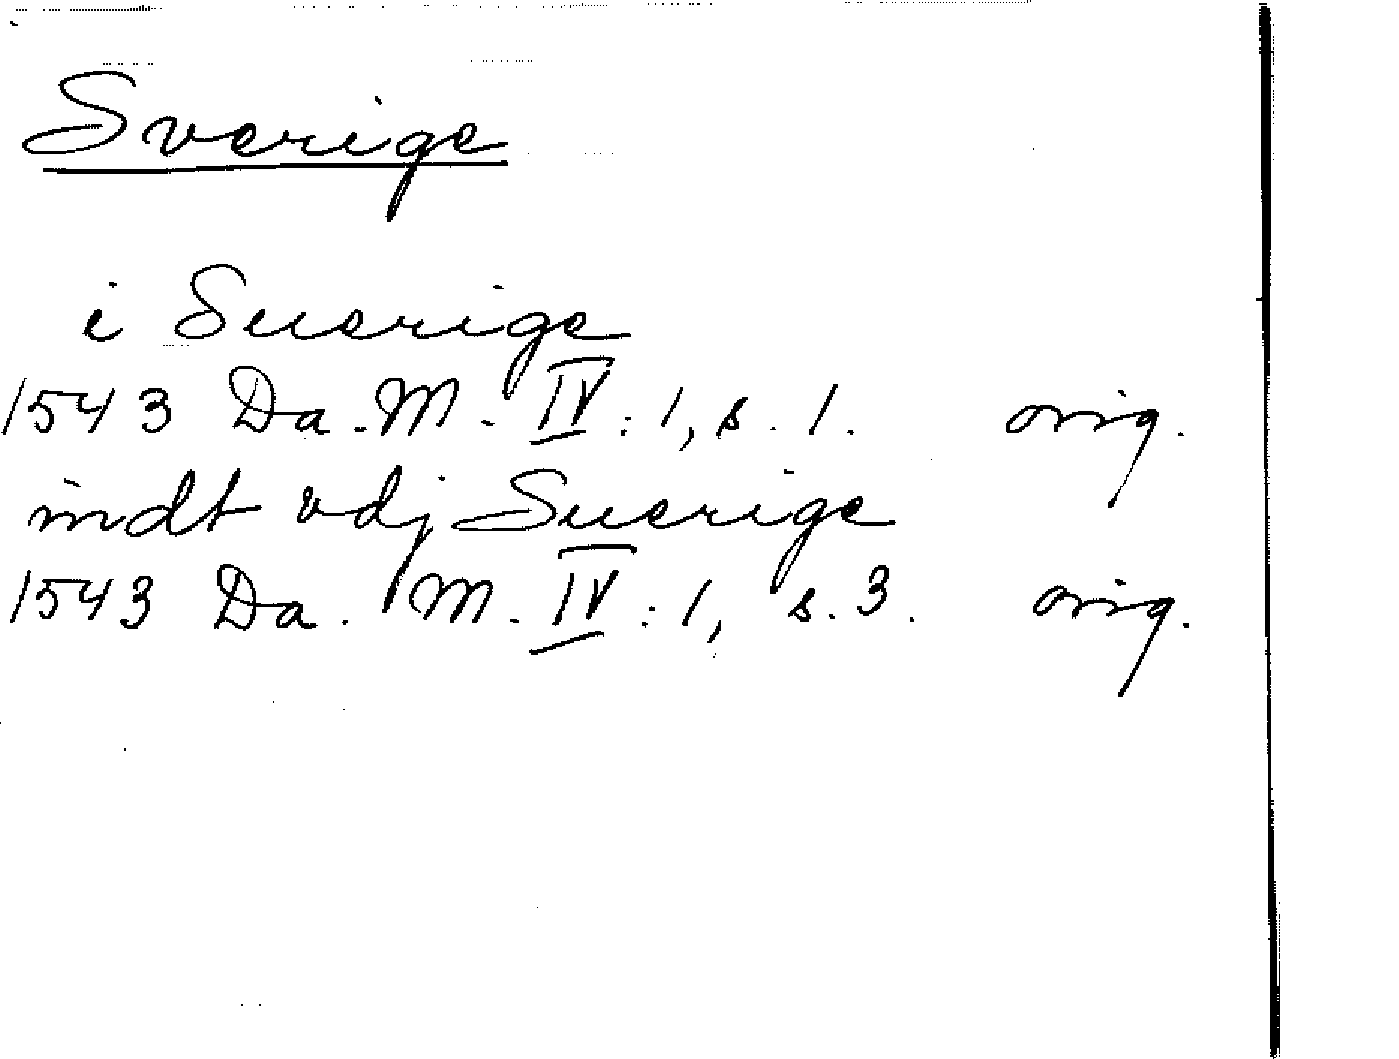 Sverige
i Suerige
1543 Da. M. IV: 1, s. 1. orig.
indt vdj Suerige
1543 Da. M. IV: 1, s. 3. orig.